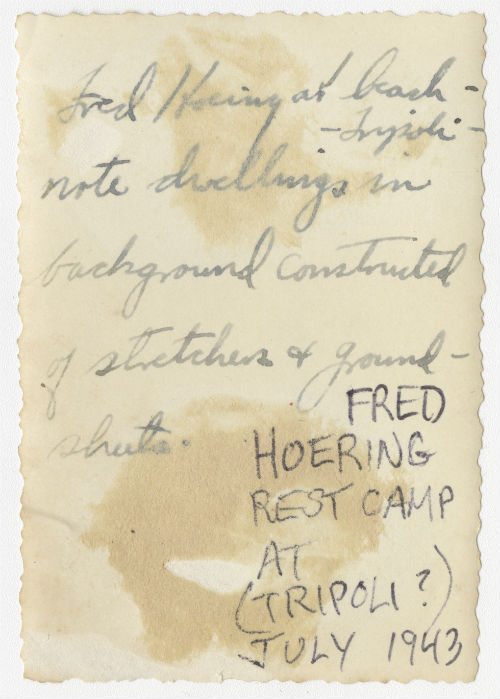 Fred Hoering at beach -
- Tripoli -
note dwellings in
background constructed
of stretchers & ground-
sheets.
FRED
HOERING
REST CAMP
AT
(TRIPOLI?)
JULY 1943